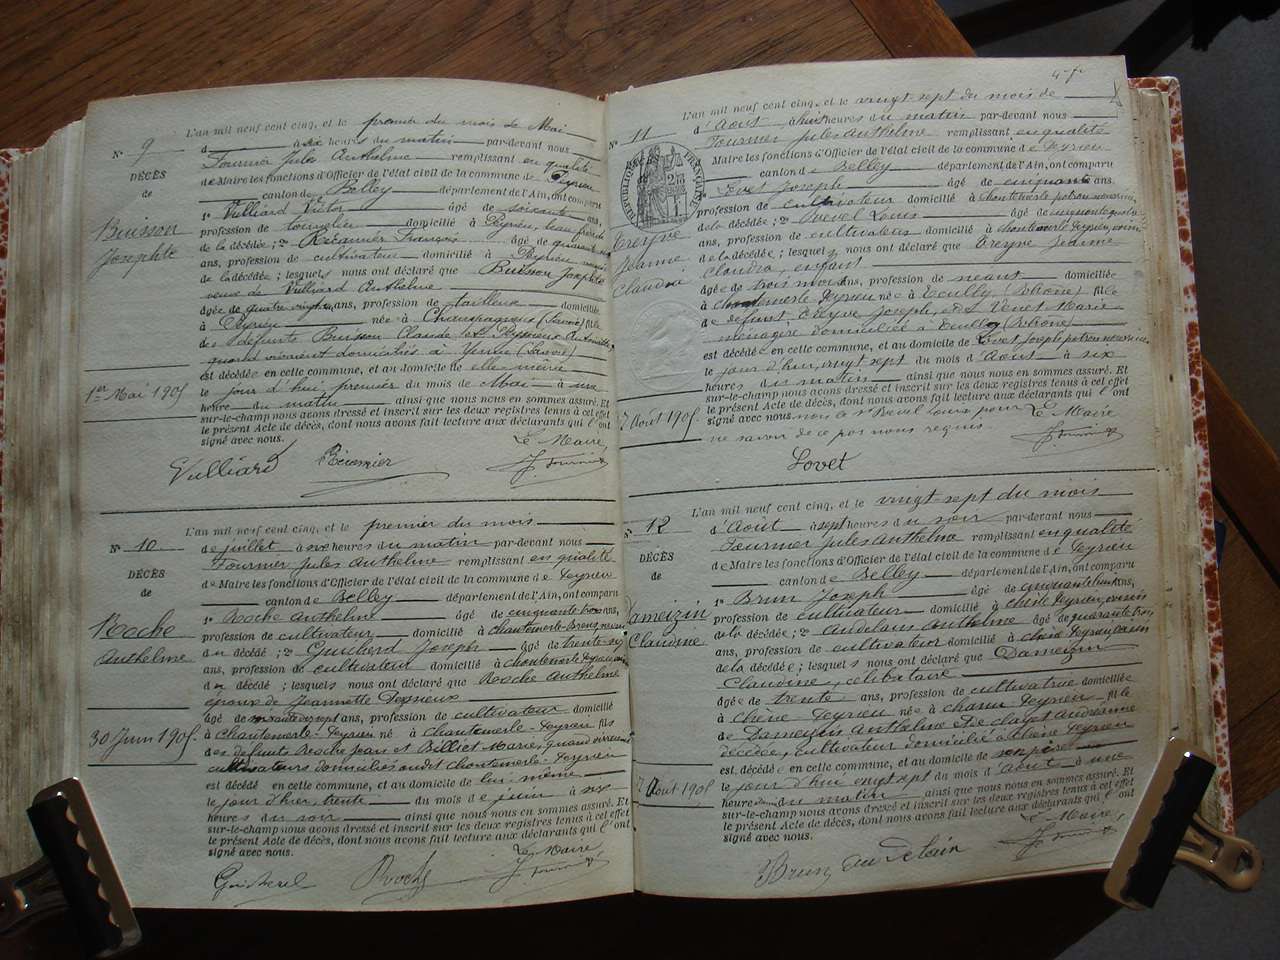 L'an mil neuf cent cinq, et le premier du mois de Mai
N° 9 à six heures du matin par-devant nous
DÉCÈS Fournier Jules Anthelme remplissant en qualité
de de Maire les fonctions d'Officier de l'état civil de la commune de Peyrieu
canton de Belley département de l'Ain, ont comparu
Buisson 1° Vulliard Victor âgé de soixante ans,
Josephte profession de domicilié à Peyrieu, beau frère
de la décédée ; 2° Récamier François âgé de quarante
ans, profession de cultivateur domicilié à Peyrieu
de la décédée ; lesquels nous ont déclaré que Buisson Josephte
veuve de Vulliard Anthelme
âgée de quatre vingts ans, profession de tailleuse domiciliée
à Peyrieu née à Chanaz (Savoie) fille
des défunts Buisson Claude et
quand vivaient domiciliés à Yenne (Savoie)
est décédée en cette commune, et au domicile de elle même
1er Mai 1905 le jour d'hui premier du mois de Mai à une
heure du matin ainsi que nous nous en sommes assuré. Et
sur-le-champ nous avons dressé et inscrit sur les deux registres tenus à cet effet
le présent Acte de décès, dont nous avons fait lecture aux déclarants qui l'ont
signé avec nous.
Le Maire
Vulliard Récamier J. Fournier
L'an mil neuf cent cinq, et le premier du mois
N° 10 de juillet à six heures du matin par-devant nous
DÉCÈS Fournier Jules Anthelme remplissant en qualité
de de Maire les fonctions d'Officier de l'état civil de la commune de Peyrieu
canton de Belley département de l'Ain, ont comparu
Roche 1° Roche Anthelme âgé de cinquante trois ans,
Anthelme profession de cultivateur domicilié à Chantemerle
du décédé ; 2° Guicherd Joseph âgé de trente-six
ans, profession de cultivateur domicilié à Chantemerle Peyrieu
du décédé ; lesquels nous ont déclaré que Roche Anthelme
époux de Jeannette Peysieux
âgé de soixante sept ans, profession de cultivateur domicilié
30 Juin 1905 à Chantemerle-Peyrieu né à Chantemerle-Peyrieu fils
des défunts Roche Jean et Billiet Marie, quand vivaient
cultivateurs domiciliés audit Chantemerle-Peyrieu
est décédé en cette commune, et au domicile de lui même
le jour d'hier, trente du mois de juin à six
heures du soir ainsi que nous nous en sommes assuré. Et
sur-le-champ nous avons dressé et inscrit sur les deux registres tenus à cet effet
le présent Acte de décès, dont nous avons fait lecture aux déclarants qui l'ont
signé avec nous.
Le Maire
Guicherd Roche J. Fournier
L'an mil neuf cent cinq, et le vingt sept du mois de
N° 11 d'Août à huit heures du matin par-devant nous
Fournier Jules Anthelme remplissant en qualité
de Maire les fonctions d'Officier de l'état civil de la commune de Peyrieu
RÉPUBLIQUE FRANÇAISE canton de Belley département de l'Ain, ont comparu
1° Lovet Joseph âgé de cinquante ans,
profession de cultivateur domicilié à
de la décédée ; 2° Bovel Louis âgé de cinquante quatre
Treyve ans, profession de cultivateur domicilié à Chantemerle Peyrieu, voisin
Jeanne de la décédée ; lesquels nous ont déclaré que Treyve Jeanne
Claudia Claudia, enfant
âgée de trois mois ans, profession de néant domiciliée
à Chantemerle Peyrieu née à (Rhône) fille
de défunt Treyve Joseph, et de Venet Marie
ménagère domiciliée à (Rhône)
est décédée en cette commune, et au domicile de Lovet Joseph
le jour d'hui, vingt sept du mois d'Août à six
heures du matin ainsi que nous nous en sommes assuré. Et
sur-le-champ nous avons dressé et inscrit sur les deux registres tenus à cet effet
7 Août 1905 le présent Acte de décès, dont nous avons fait lecture aux déclarants qui l'ont
signé avec nous non le Sr Bovel Louis pour
ne savoir de ce par nous requis. Le Maire
Lovet J. Fournier
L'an mil neuf cent cinq, et le vingt-sept du mois
N° 12 d'Août à sept heures du soir par-devant nous
DÉCÈS Fournier Jules Anthelme remplissant en qualité
de de Maire les fonctions d'Officier de l'état civil de la commune de Peyrieu
canton de Belley département de l'Ain, ont comparu
Dameizin 1° Brun Joseph âgé de cinquante huit ans,
Claudine profession de cultivateur domicilié à Peyrieu, voisin
de la décédée ; 2° Audelain Anthelme âgé de quarante trois
ans, profession de cultivateur domicilié à Peyrieu voisin
de la décédée ; lesquels nous ont déclaré que Dameizin
Claudine, célibataire
âgée de trente ans, profession de cultivatrice domiciliée
à Peyrieu née à Peyrieu fille
de Dameizin Anthelme et de
décédée, cultivateur domicilié à Peyrieu
est décédée en cette commune, et au domicile de son père
7 Août 1905 le jour d'hui vingt sept du mois d'Août à une
heure du matin ainsi que nous nous en sommes assuré. Et
sur-le-champ nous avons dressé et inscrit sur les deux registres tenus à cet effet
le présent Acte de décès, dont nous avons fait lecture aux déclarants qui l'ont
signé avec nous.
Le Maire
Brun Audelain J. Fournier